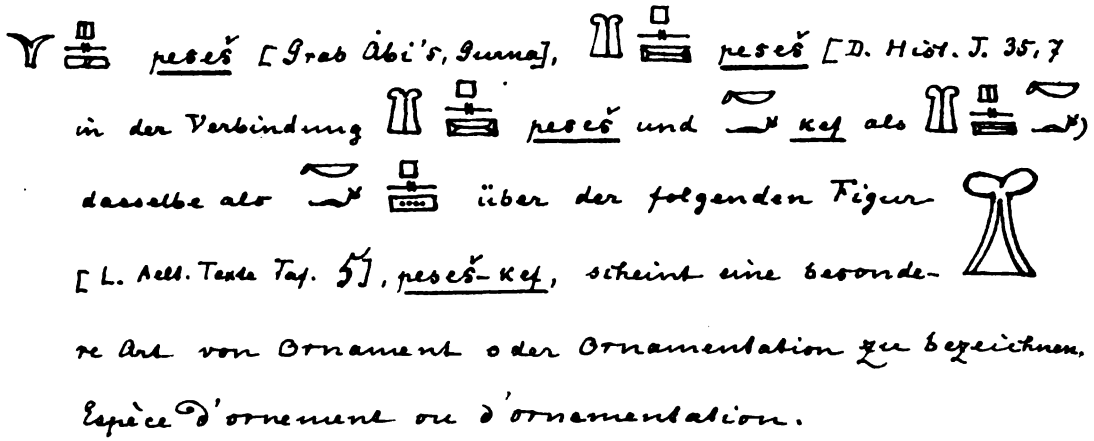 𓄋 𓊪𓊃𓈙 peseš [Grab Ȧbi's, Gurna], 𓊪𓊃𓈙 peseš [D. Hist. J. 35, 7
in der Verbindung 𓊪𓊃𓈙 peseš und 𓎡𓆑 kef als 𓊪𓊃𓈙𓎡𓆑)
dasselbe als 𓎡𓆑 𓊪𓊃𓈙 über der folgenden Figur
[L. Aelt. Texte Taf. 5], peseš-kef, scheint eine besonde-
re Art von Ornament oder Ornamentation zu bezeichnen.
Espèce d'ornement ou d'ornementation.